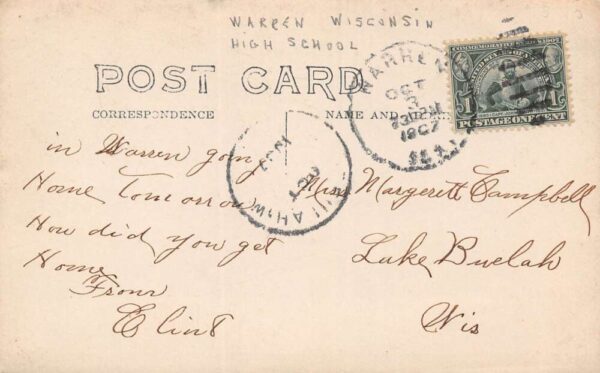 WARREN WISCONSIN
HIGH SCHOOL
POST CARD
CORRESPONDENCE
NAME AND
WARREN
OCT
3
PM
1907
ILL
COMMEMORATIVE
1
1
POSTAGE ONE CENT
OCT
1907
in Warren going
Home Tomorrow
How did you get
Home
From
Clint
Miss Margerett Campbell
Lake Buelah
Wis